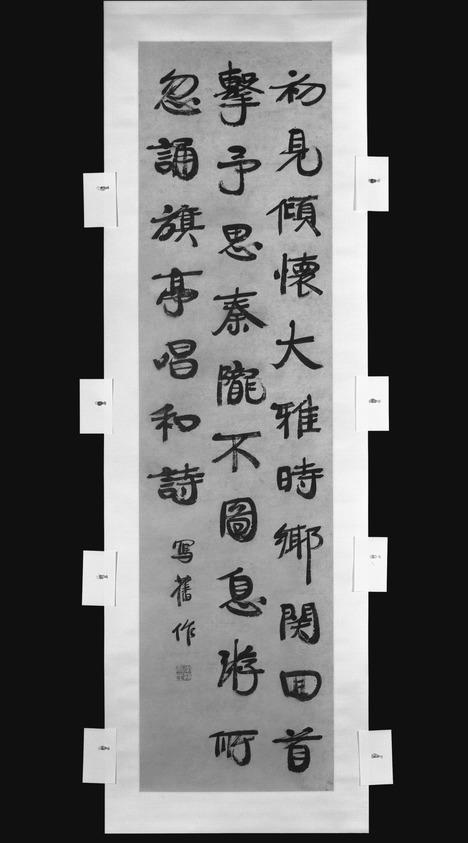 初見傾懷大雅時鄉関回首
擊予思秦隴不圖息游所
忽誦旗亭唱和詩
寫舊作